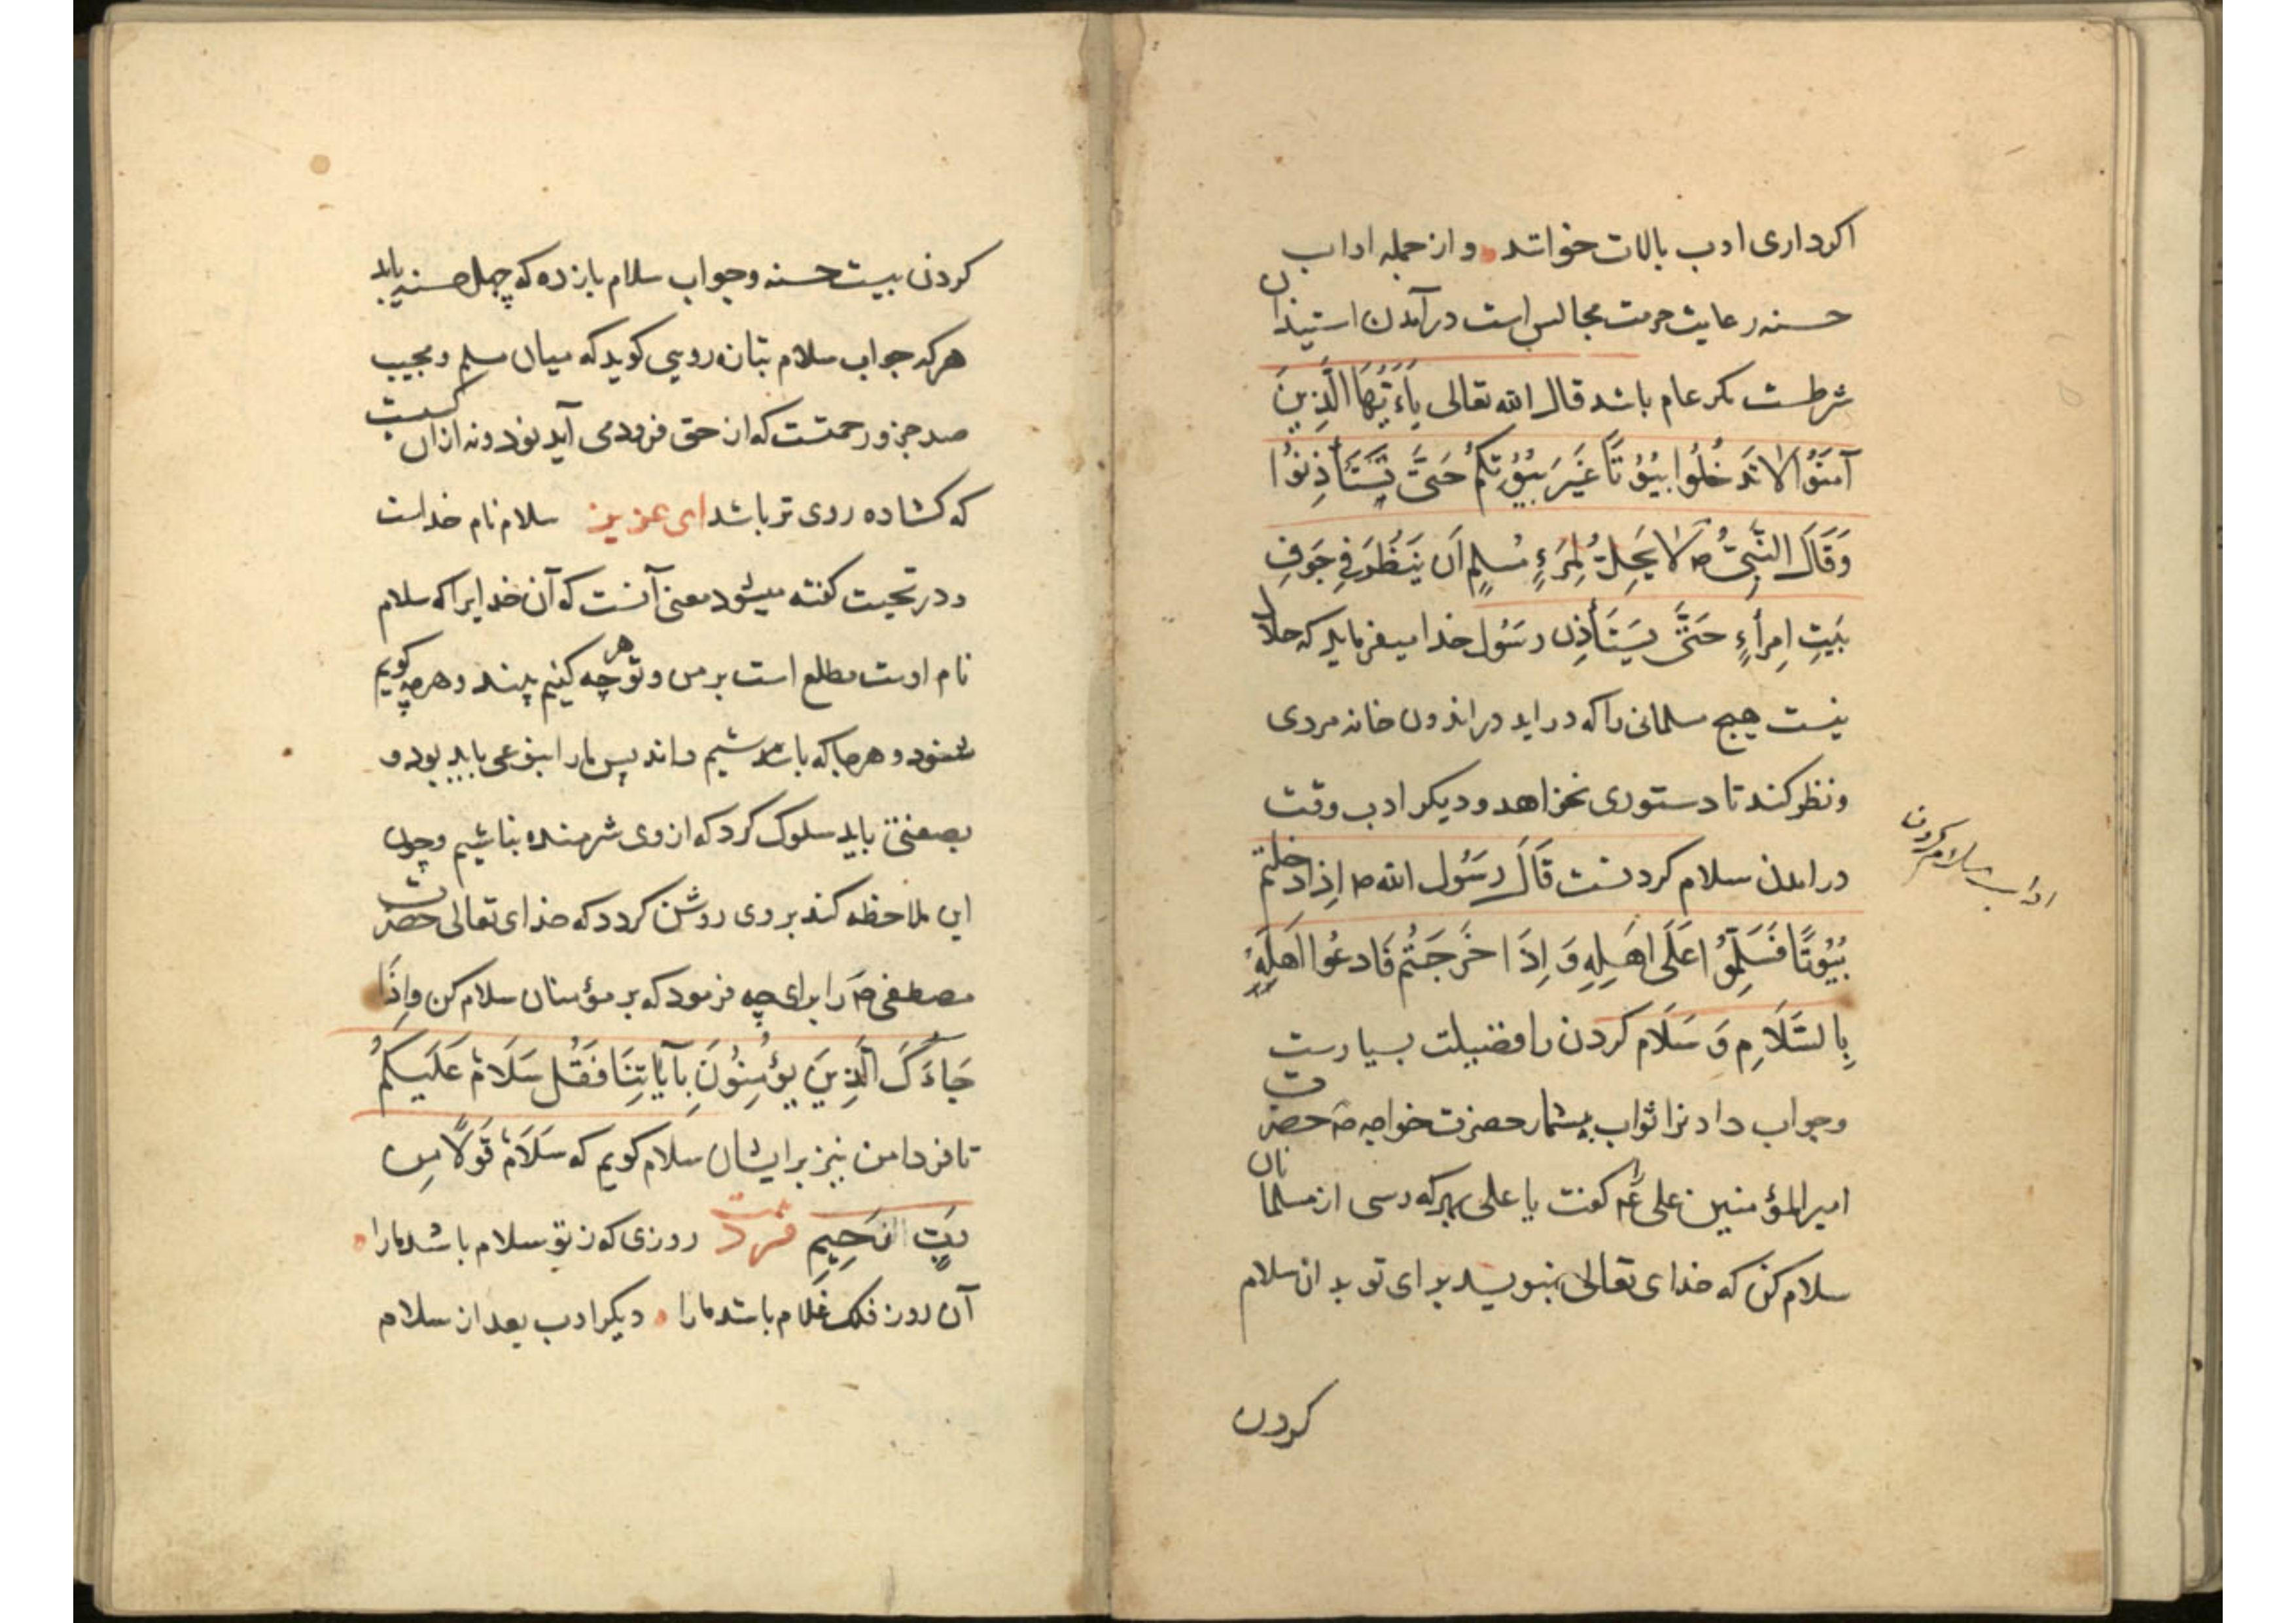 اکرداری ادب بالات خوانند و از جمله اداب
حسنه رعایت حرمت مجالس است درآمدن استیذان
شرطست مکر عام باشد قال الله تعالی یَاءَیُّهَا الَّذِینَ
آمَنَوُا لَا تَدَخُلُوا بیُوُتًا غَیَرَ بیُوُتِکُم حَتَّی تَستَأذِنوُا
وَقَالَ النَّبِیُّ ص لَا یَحِلُّ لِمَرَءٍ مُسلِمٍ اَن یَنظُرَ فِی جَوَفِ
بَیتِ اِمرأءٍ حَتَّی یَستَأذِن رسُول خدا میفرماید که حلال
نیست هیچ مسلمانی را که دراید در اندرون خانه مردی
و نظر کند تا دستوری نخواهد و دیکر ادب وقت
درامدن سلام کردنست قَالَ رسَوُل الله ص اِذا دخلتم
بیُوُتًا فَسَلِّموُا عَلَی اَهلِهِ وَ اِذَا خَرَجَتُم فَادعُوا اَهلِهُ
بِالسَّلَامِ وَ سَلَام کردن را فضیلت بسیارست
و جواب دادنرا ثواب بیشمار حضرت خواجه ص حضرت
امیرالمؤمنین علی عم کفت یا علی بهرکه رسی از مسلمانان
سلام کن که خدای تعالی بنویسد برای تو بدان سلام
کردن
اداب سلام کردن
کردن بیست حسنه و جواب سلام بازده که چهل حسنه یابد
هرکه جواب سلام بتازه رویی کوید که میان مسلم و مجیب
صد جزو رحمتست که از حق فرود می آید نود و نه ازان کسیست
که کشاده روی تر باشد ای عزیز سلام نام خداست
و در تحیت کفته میشود معنی آنست که آن خدایرا که سلام
نام اوست مطلع است بر من و تو هرچه کنیم بیند و هرچه کویم
شنود و هرجا که باشیم داند پس مارا بنوعی باید بود و
بصفتی باید سلوک کرد که از وی شرمنده نباشیم و چون
این ملاحظه کند بر وی روشن کردد که خدای تعالی حضرت
مصطفی ص را برای چه فرمود که بر مؤمنان سلام کن وَاِذَا
جَاءَکَ الَّذِینَ یؤُمِنوُنَ بِآیَاتِنَا فَقُل سَلَامٌ عَلَیکُمُ
تا فردا من نیز برایشان سلام کویم که سَلَامٌ قَوَلًا مِن
رَبٍّ الرَحِیِمِ فرد روزی که ز تو سلام باشد مارا
آن روز فلک غلام باشد مارا دیکر ادب بعد از سلام